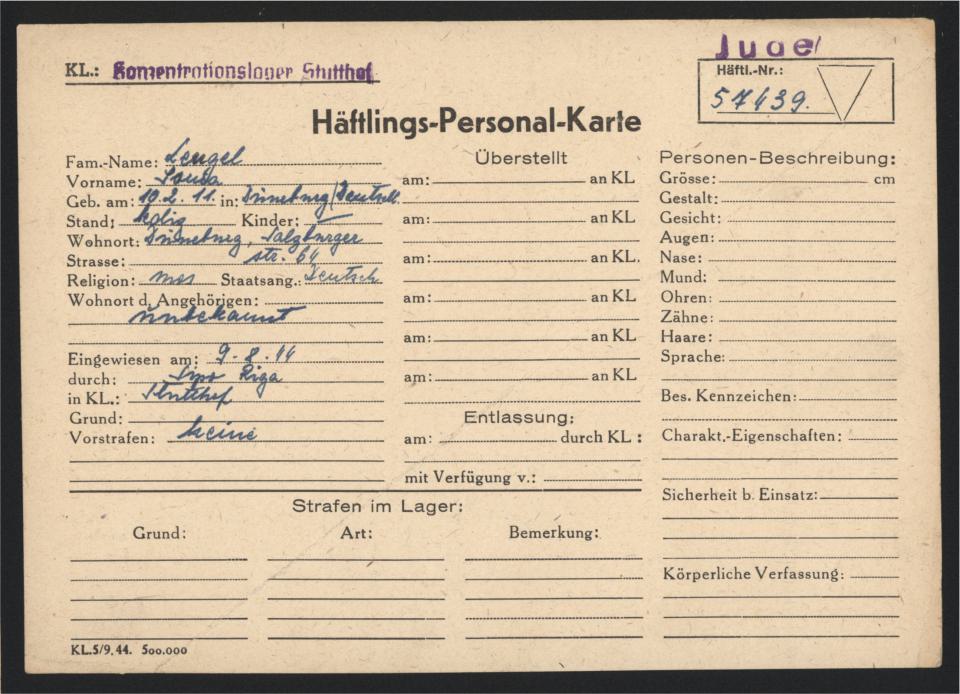 Jude
KL.: Konzentrationslager Stutthof
Häftl.-Nr.:
57439.
Häftlings-Personal-Karte
Fam.-Name: Lengel
Vorname:
Geb. am: 10.2.11. in: /Deutschl.
Stand: ledig Kinder: —
Wohnort: Salzburger
Strasse: str. 64
Religion: mos Staatsang.: Deutsch
Wohnort d. Angehörigen:
Unbekannt
Eingewiesen am: 9.8.44
durch: Sipo Riga
in KL.: Stutthof
Grund:
Vorstrafen: keine
Überstellt
am: an KL
am: an KL
am: an KL.
am: an KL
am: an KL
am: an KL
Entlassung:
am: durch KL:
mit Verfügung v.:
Personen-Beschreibung:
Grösse: cm
Gestalt:
Gesicht:
Augen:
Nase:
Mund:
Ohren:
Zähne:
Haare:
Sprache:
Bes. Kennzeichen:
Charakt.-Eigenschaften:
Sicherheit b. Einsatz:
Körperliche Verfassung:
Strafen im Lager:
Grund: Art: Bemerkung:
KL.5/9.44. 500.000